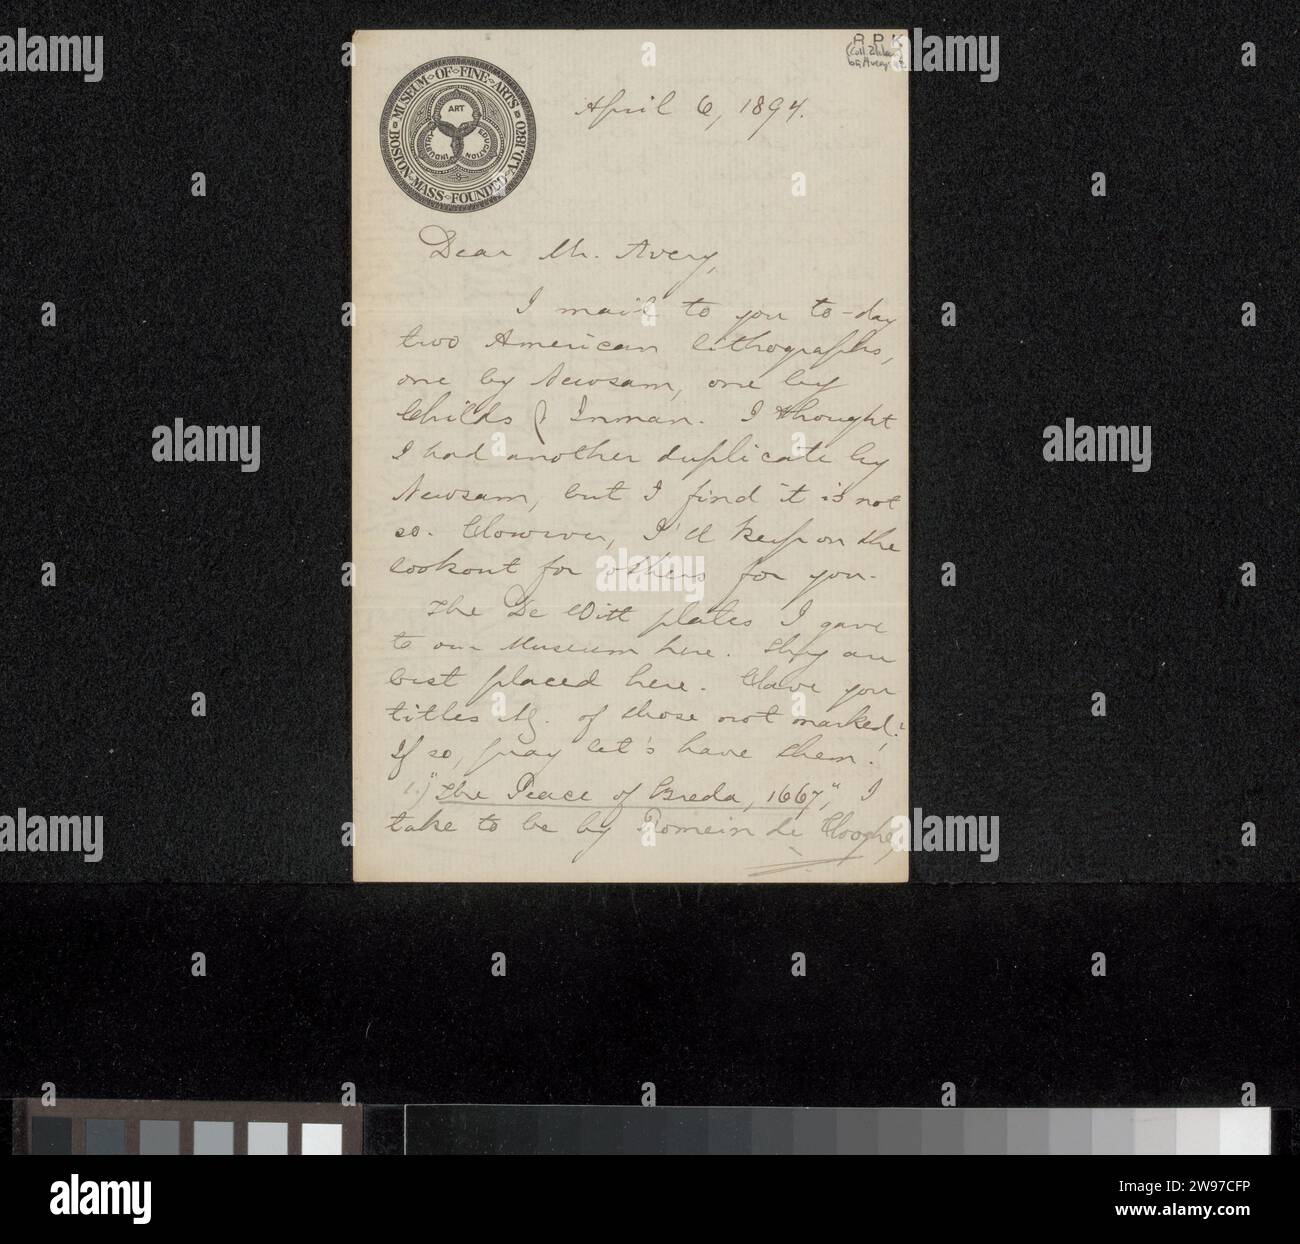 MUSEUM OF FINE ARTS
BOSTON MASS FOUNDED A.D. 1870
ART
INDUSTRY EDUCATION
R P K
April 6, 1894.
Dear Mr. Avery,
I mail to you to-day
two American lithographs,
one by Newsam, one by
Childs & Inman. I thought
I had another duplicate by
Newsam, but I find it is not
so. However, I'll keep on the
lookout for others for you.
The De Witt plates I gave
to our Museum here. They are
best placed here. Have you
titles &c. of those not marked?
If so, pray let's have them!
1.) "The Peace of Breda, 1667", I
take to be by Romein de Hooghe,
alamy
a
alamy
Image ID: 2W97CFP
www.alamy.com